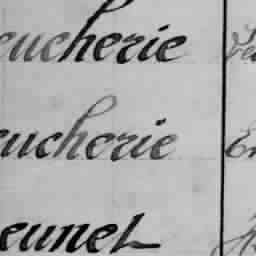 eucherie
eucherie En
eunet